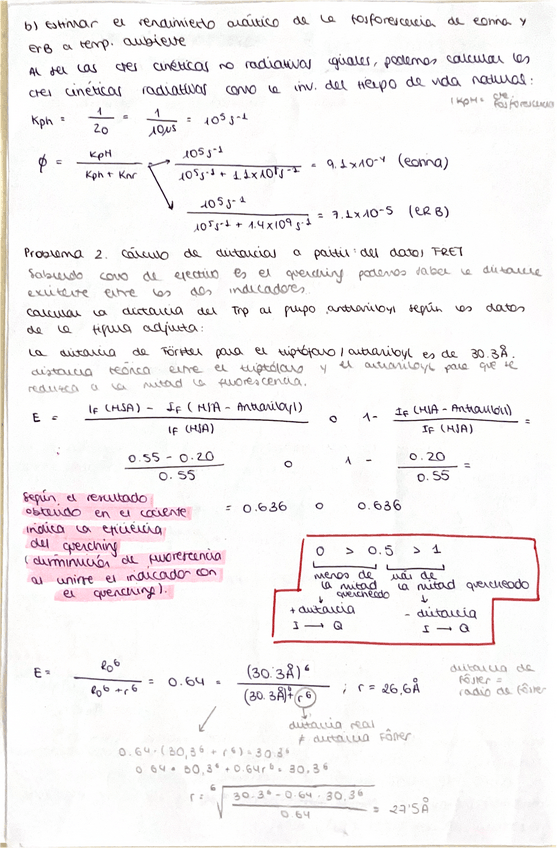 b) Estimar el rendimiento cuántico de la fosforescencia de eosina y
ErB a temp. ambiente
Al ser las ctes cinéticas no radiativas iguales, podemos calcular las
ctes cinéticas radiativas como la inv. del tiempo de vida natural:
Kph = 1/τ0 = 1/10μs = 10⁵ s⁻¹
(Kph = cte fosforescencia
φ = KpH / Kph + Knr → 10⁵ s⁻¹ / 10⁵ s⁻¹ + 1.1x10⁸ s⁻¹ = 9.1x10⁻⁴ (eosina)
10⁵ s⁻¹ / 10⁵ s⁻¹ + 1.4x10⁹ s⁻¹ = 7.1x10⁻⁵ (ERB)
Problema 2. Cálculo de distancias a partir del datos FRET
Sabiendo como de efectivo es el quenching podemos saber la distancia
existente entre los dos indicadores.
Calcular la distancia del Trp al grupo antraniloyl según los datos
de la figura adjunta:
La distancia de Förster para el triptófano/antraniloyl es de 30.3Å.
distancia teórica entre el triptófano y el antraniloyl para que se
reduzca a la mitad la fluorescencia.
E = IF (HSA) - IF (HSA - Antraniloyl) / IF (HSA) o 1 - IF (HSA - Antraniloyl) / IF (HSA) =
0.55 - 0.20 / 0.55 o 1 - 0.20 / 0.55 =
= 0.636 o 0.636
Según el resultado
obtenido en el cociente
indica la eficiencia
del quenching
(disminución de fluorescencia
al unirse el indicador con
el quenching).
0 > 0.5 > 1
menos de la mitad quencheado
más de la mitad quencheado
+ distancia
I → Q
- distancia
I → Q
E = R0⁶ / R0⁶ + r⁶ = 0.64 = (30.3Å)⁶ / (30.3Å)⁶ + r⁶ ; r = 26,6Å
distancia de
Förster =
radio de Förster
distancia real
≠ distancia Förster
0.64 · (30,3⁶ + r⁶) = 30.3⁶
0.64 · 30,3⁶ + 0.64r⁶ = 30.3⁶
r = ⁶√ 30.3⁶ - 0.64 · 30.3⁶ / 0.64 = 27'5Å